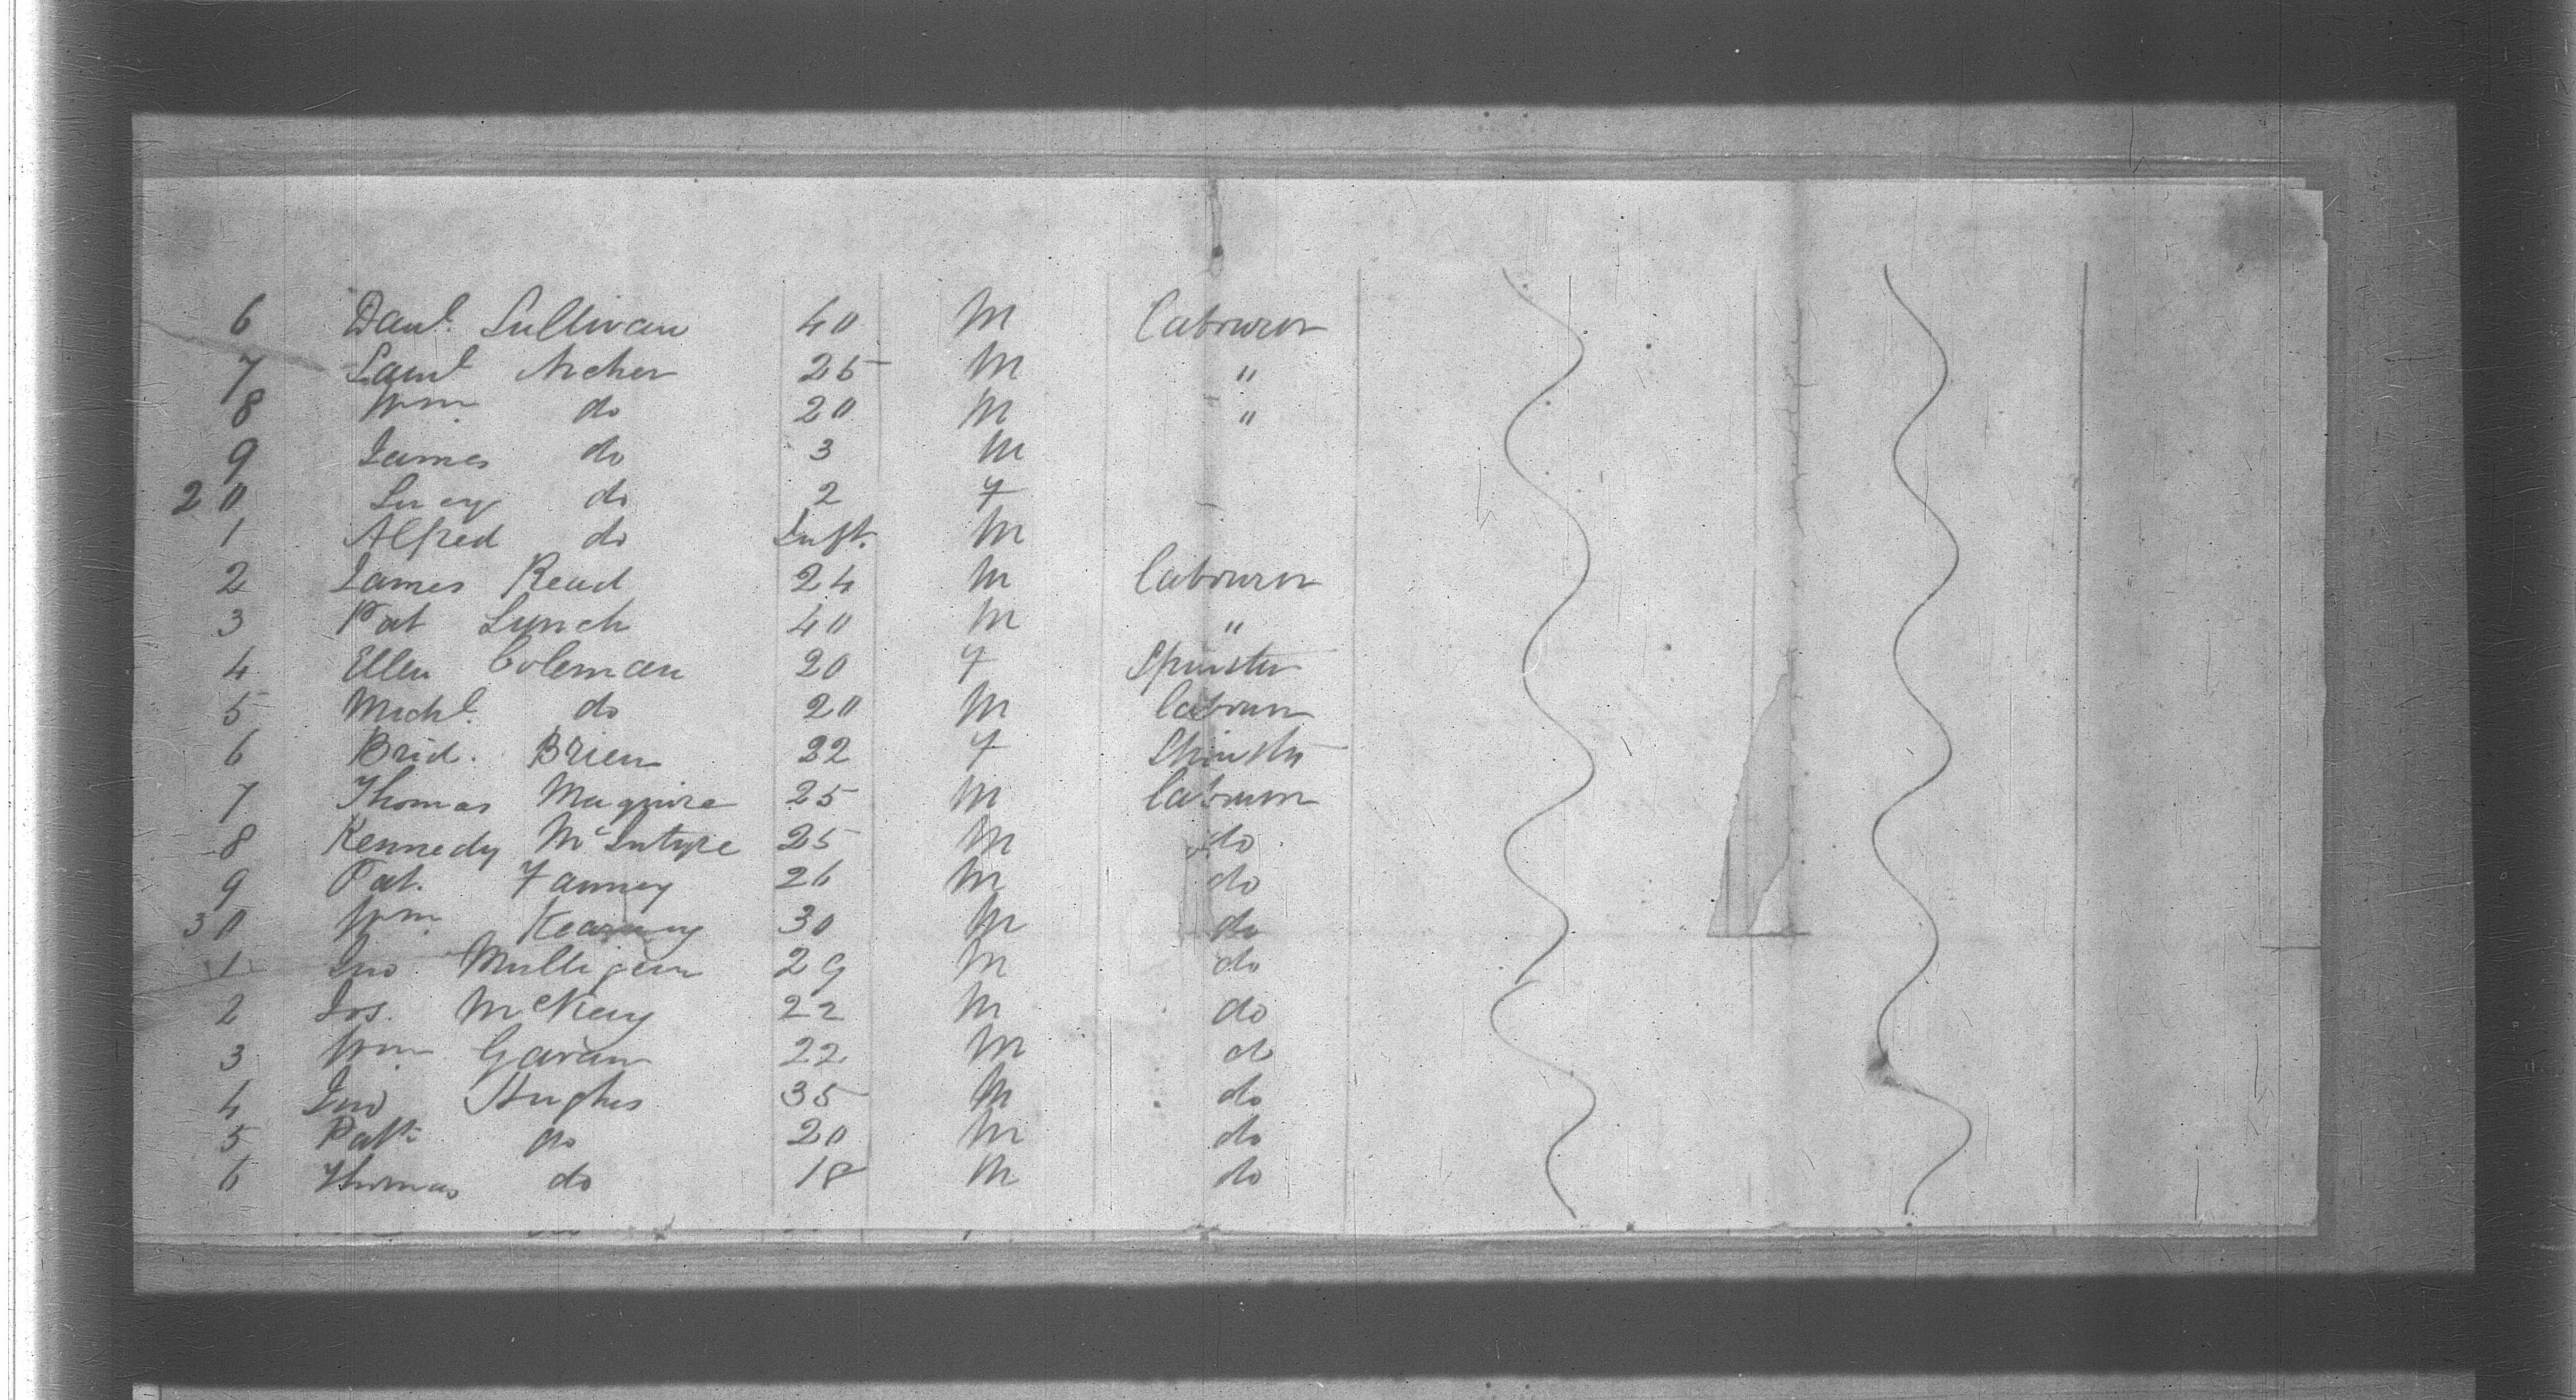 6 Danl. Sullivan 40 M Labourer
7 Saml Archer 25 M "
8 Wm do 20 M "
9 James do 3 M
20 Lucy do 2 F
1 Alfred do Inft. M
2 James Read 24 M Labourer
3 Pat Lynch 40 M "
4 Ellen Coleman 20 F Spinster
5 Michl. do 20 M Labourer
6 Brid. Brien 22 F Spinster
7 Thomas Maguire 25 M Labourer
8 Kennedy McIntyre 25 M do
9 Pat. 26 M do
30 Wm Kearney 30 M do
1 Jno. Mulligan 29 M do
2 Jos. 22 M do
3 Wm Gavan 22 M do
4 Jno Hughes 35 M do
5 Patk do 20 M do
6 Thomas do 18 M do